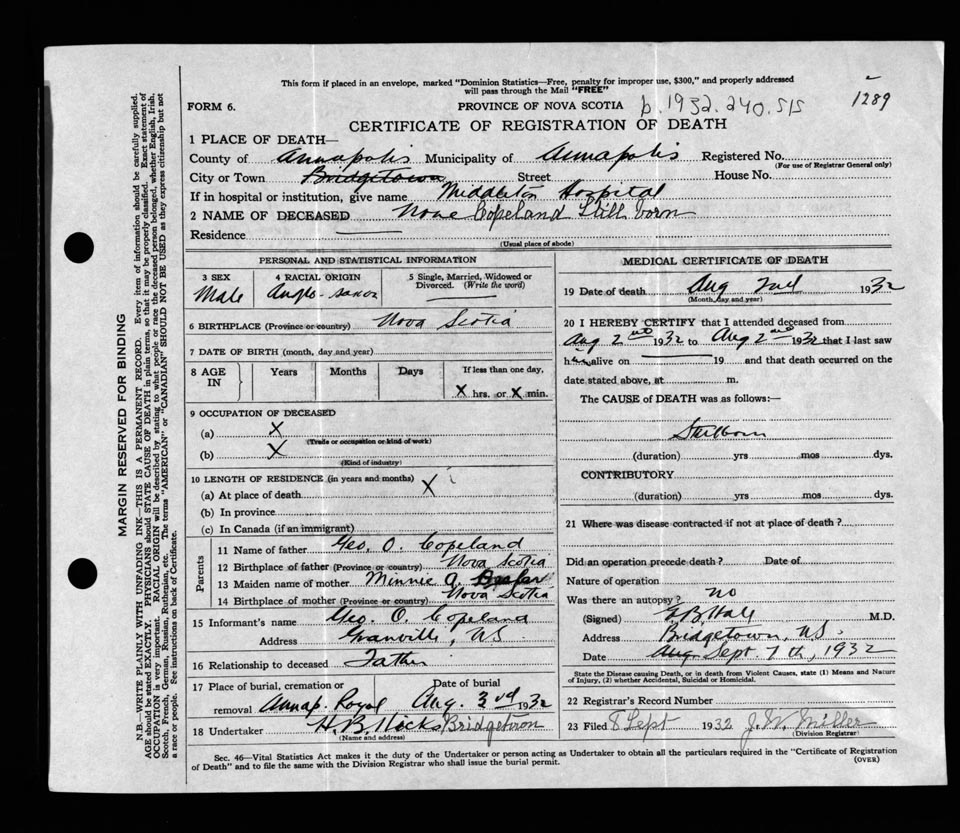 This form if placed in an envelope, marked "Dominion Statistics—Free, penalty for improper use, $300," and properly addressed
will pass through the Mail "FREE"
FORM 6.
PROVINCE OF NOVA SCOTIA
b. 1932. 240. 515
1289
CERTIFICATE OF REGISTRATION OF DEATH
1 PLACE OF DEATH—
County of Annapolis Municipality of Annapolis Registered No.
(For use of Registrar General only)
City or Town Bridgetown Street House No.
If in hospital or institution, give name Middleton Hospital
2 NAME OF DECEASED None Copeland Still born
Residence
(Usual place of abode)
PERSONAL AND STATISTICAL INFORMATION
3 SEX
Male
4 RACIAL ORIGIN
Anglo-saxon
5 Single, Married, Widowed or
Divorced. (Write the word)
6 BIRTHPLACE (Province or country) Nova Scotia
7 DATE OF BIRTH (month, day and year)
8 AGE
IN
Years
Months
Days
If less than one day,
X hrs. or X min.
9 OCCUPATION OF DECEASED
(a) X
(Trade or occupation or kind of work)
(b) X
(Kind of industry)
10 LENGTH OF RESIDENCE (in years and months) X
(a) At place of death
(b) In province
(c) In Canada (if an immigrant)
Parents
11 Name of father Geo. O. Copeland
12 Birthplace of father (Province or country) Nova Scotia
13 Maiden name of mother Minnie A.
14 Birthplace of mother (Province or country) Nova Scotia
15 Informant's name Geo. O. Copeland
Address Granville, N.S
16 Relationship to deceased Father
17 Place of burial, cremation or
removal Annap. Royal
Date of burial
Aug. 3rd 1932
18 Undertaker H. B. Hicks Bridgetown
(Name and address)
MEDICAL CERTIFICATE OF DEATH
19 Date of death Aug 2nd 1932
(Month, day and year)
20 I HEREBY CERTIFY that I attended deceased from
Aug 2nd 1932 to Aug 2nd 1932 that I last saw
him alive on 19 and that death occurred on the
date stated above, at m.
The CAUSE of DEATH was as follows:—
Stillborn
(duration) yrs mos dys.
CONTRIBUTORY
(duration) yrs mos dys.
21 Where was disease contracted if not at place of death?
Did an operation precede death? Date of
Nature of operation
Was there an autopsy? no
(Signed) Hall M.D.
Address Bridgetown, N.S.
Date Aug. Sept 7th, 1932
State the Disease causing Death, or in death from Violent Causes, state (1) Means and Nature
of Injury, (2) whether Accidental, Suicidal or Homicidal.
22 Registrar's Record Number
23 Filed 8 Sept 1932 J. W. Miller
(Division Registrar)
Sec. 46—Vital Statistics Act makes it the duty of the Undertaker or person acting as Undertaker to obtain all the particulars required in the "Certificate of Registration
of Death" and to file the same with the Division Registrar who shall issue the burial permit.
(OVER)
MARGIN RESERVED FOR BINDING
N.B.—WRITE PLAINLY WITH UNFADING INK—THIS IS A PERMANENT RECORD. Every item of information should be carefully supplied.
AGE should be stated EXACTLY. PHYSICIANS should STATE CAUSE OF DEATH in plain terms, so that it may be properly classified. Exact statement of
OCCUPATION is very important. RACIAL ORIGIN will be described by stating to what people or race the deceased person belonged, whether English, Irish,
Scotch, French, German, Russian, Ruthenian, etc. The terms "AMERICAN" or "CANADIAN" SHOULD NOT BE USED as they express citizenship but not
a race or people. See instructions on back of Certificate.